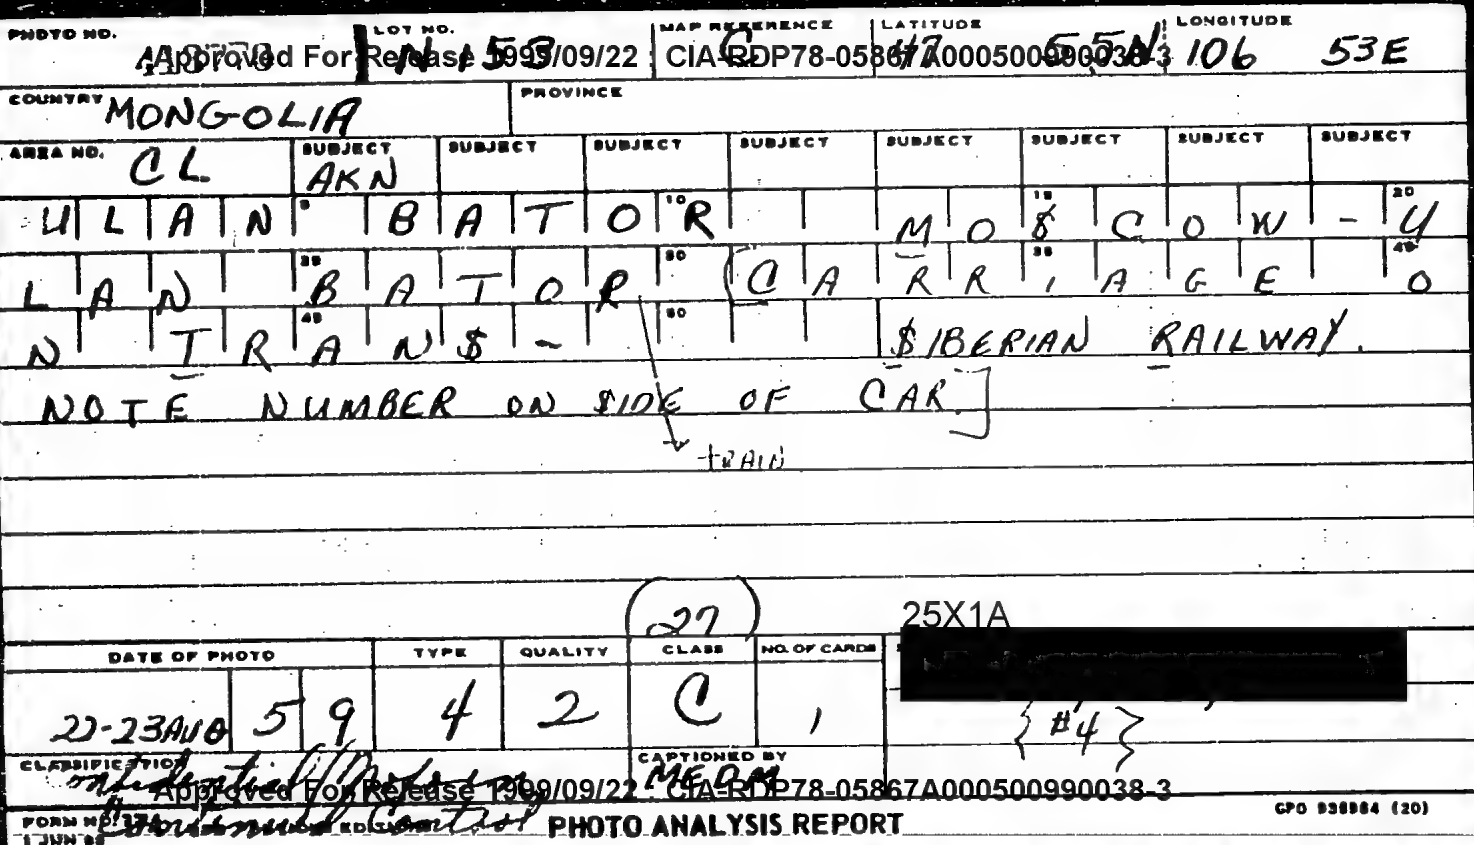 PHOTO NO. LOT NO. MAP REFERENCE LATITUDE LONGITUDE
N 158 C 47 55N 106 53E
Approved For Release 1999/09/22 : CIA-RDP78-05867A000500990038-3
COUNTRY MONGOLIA PROVINCE
AREA NO. CL SUBJECT SUBJECT SUBJECT SUBJECT SUBJECT SUBJECT SUBJECT SUBJECT
AKN
ULAN BATOR MOSCOW-U
LAN BATOR [CARRIAGE O
N TRANS- SIBERIAN RAILWAY.
NOTE NUMBER ON SIDE OF CAR.]
TRAIN
27
25X1A
DATE OF PHOTO TYPE QUALITY CLASS NO. OF CARDS
22-23 AUG 59 4 2 C 1
{#4}
CLASSIFICATION CAPTIONED BY
Confidential MEDM
Approved For Release 1999/09/22 : CIA-RDP78-05867A000500990038-3
Continued Control
FORM NO. PHOTO ANALYSIS REPORT GPO 938984 (20)
1 JUN